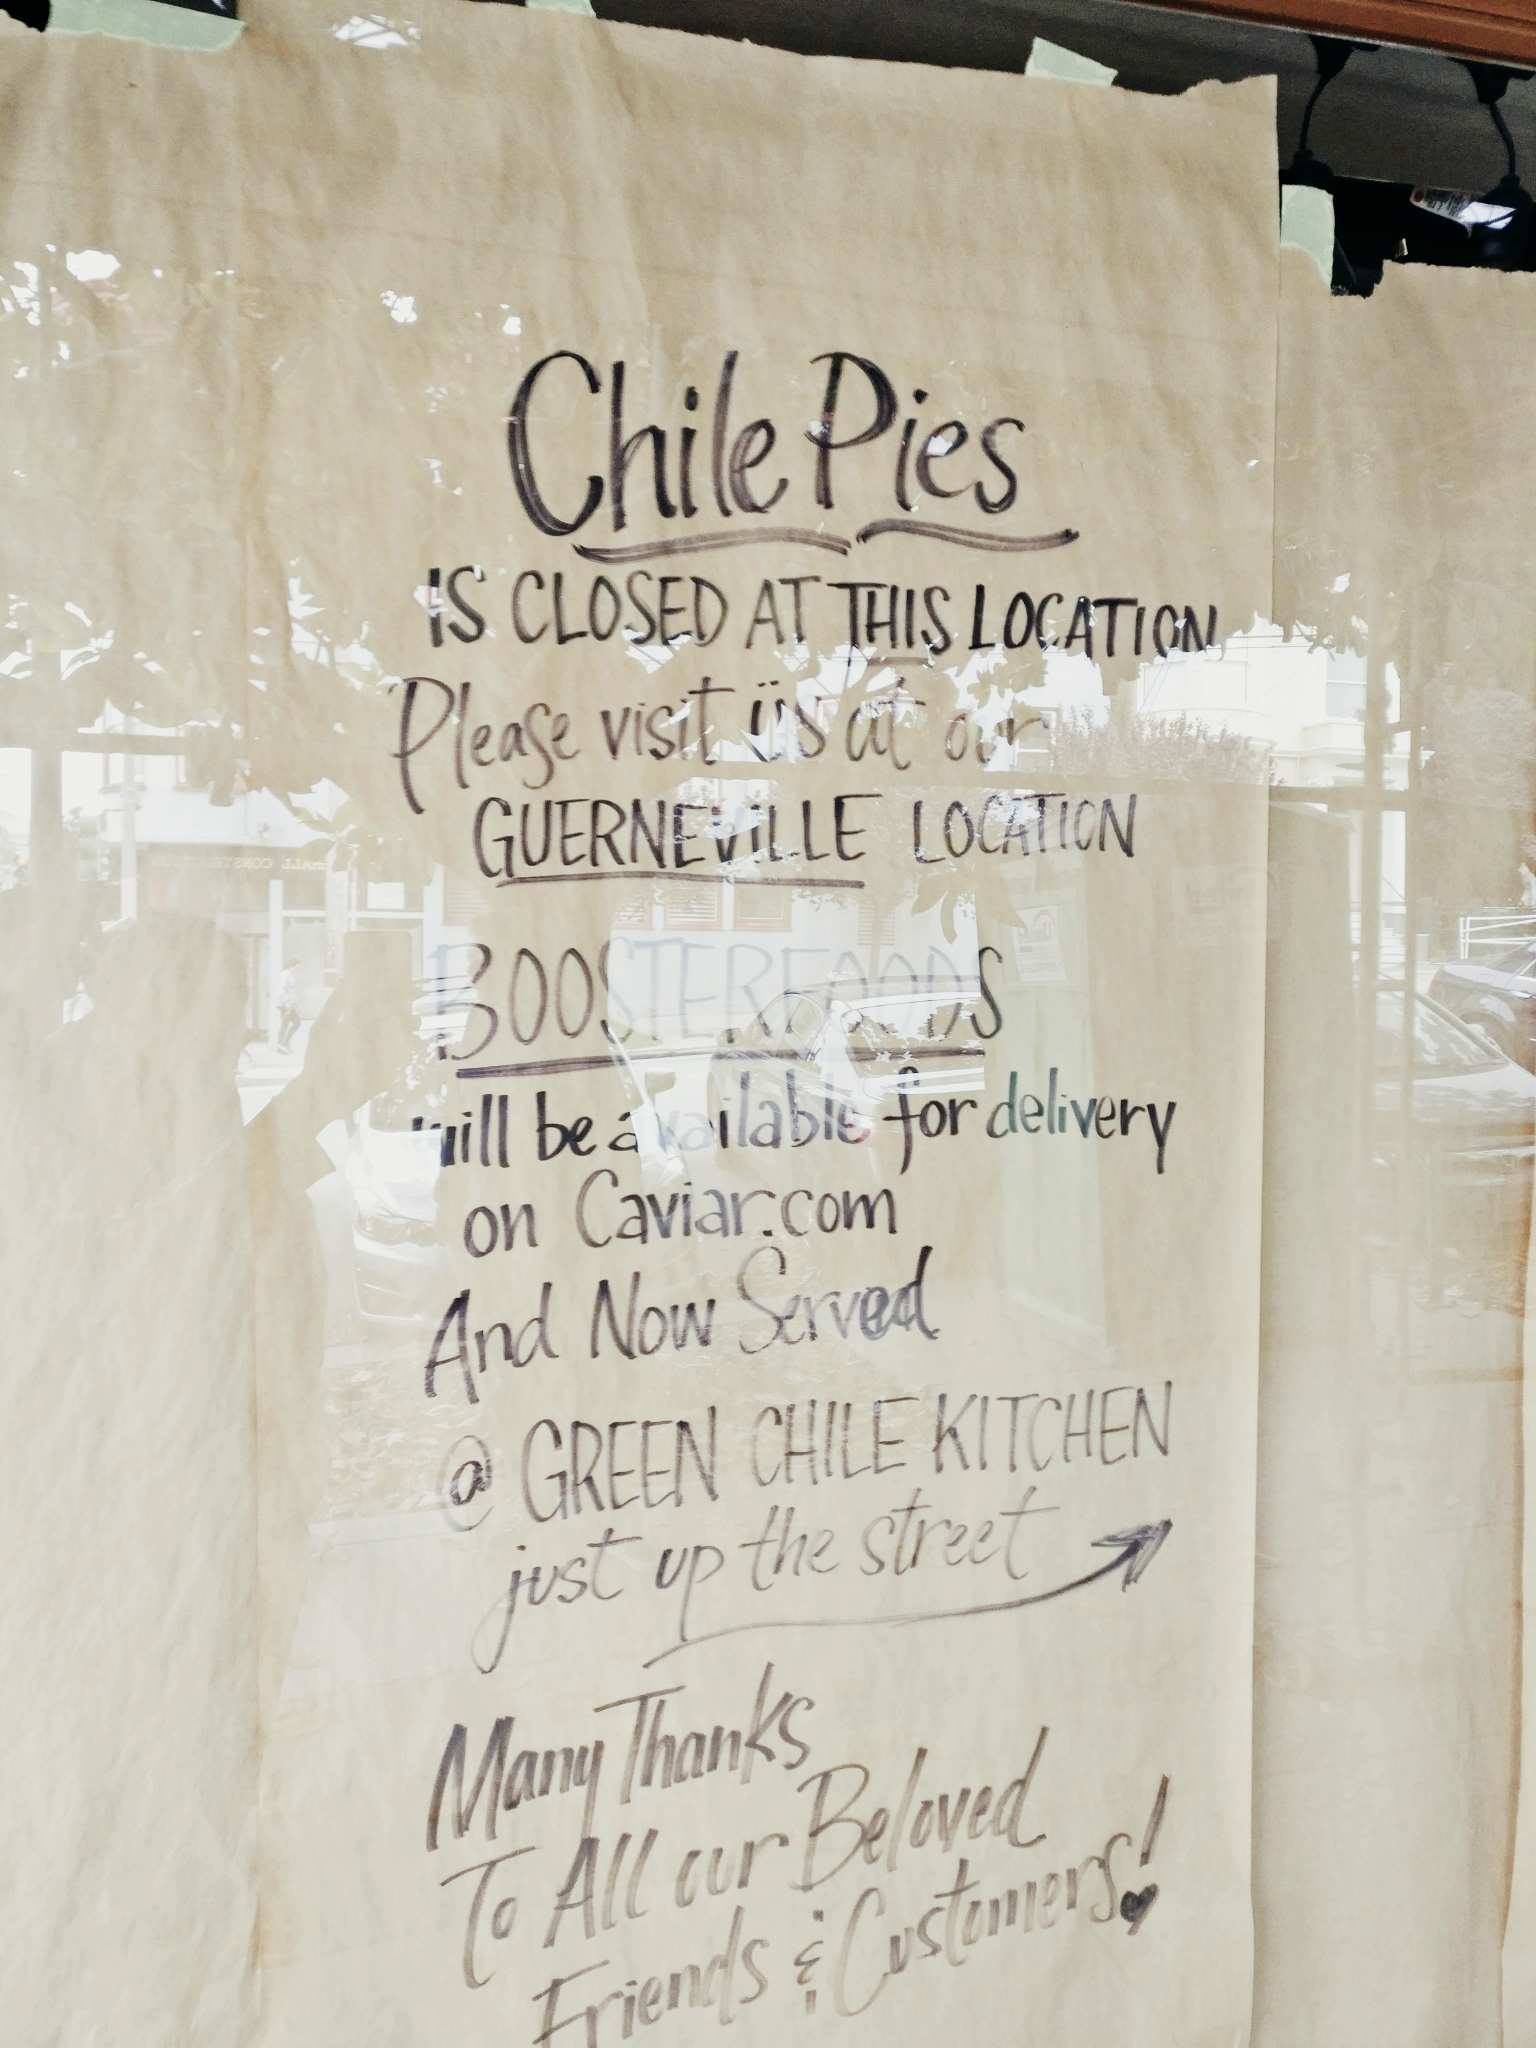 Chile Pies
IS CLOSED AT THIS LOCATION
Please visit us at our
GUERNEVILLE LOCATION
BOOSTERFOODS
will be available for delivery
on Caviar.com
And Now Served
@ GREEN CHILE KITCHEN
just up the street
Many Thanks
To All our Beloved
Friends & Customers!